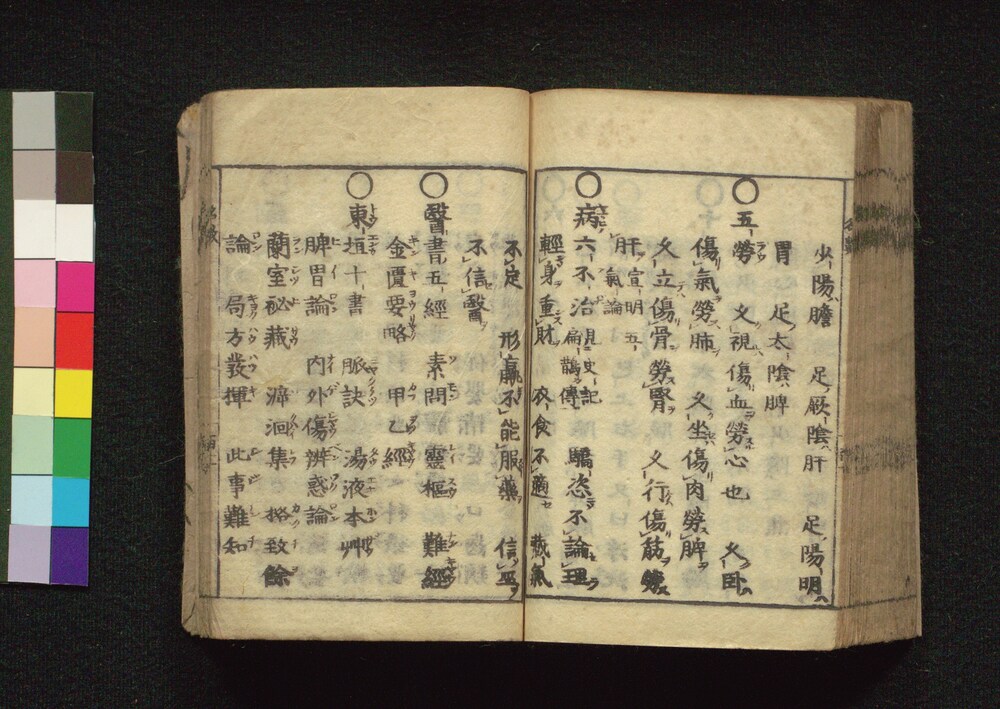 少陽膽 足厥陰肝 足陽明
胃 足太陰脾
○五勞 久視傷血勞心也 久臥
傷氣勞肺 久坐傷肉勞脾
久立傷骨勞腎 久行傷筋勞
肝 宣明五氣論
○病六不治 見史記扁鵲傳 驕恣不論理
輕身重財 衣食不適 藏氣
不定 形羸不能服藥 信巫
不信醫
○醫書五經 素問 靈樞 難經
金匱要略 甲乙經
○東垣十書 脈訣 湯液本艸
脾胃論 内外傷辨惑論
蘭室祕藏 溯洄集 格致餘
論 局方發揮 此事難知